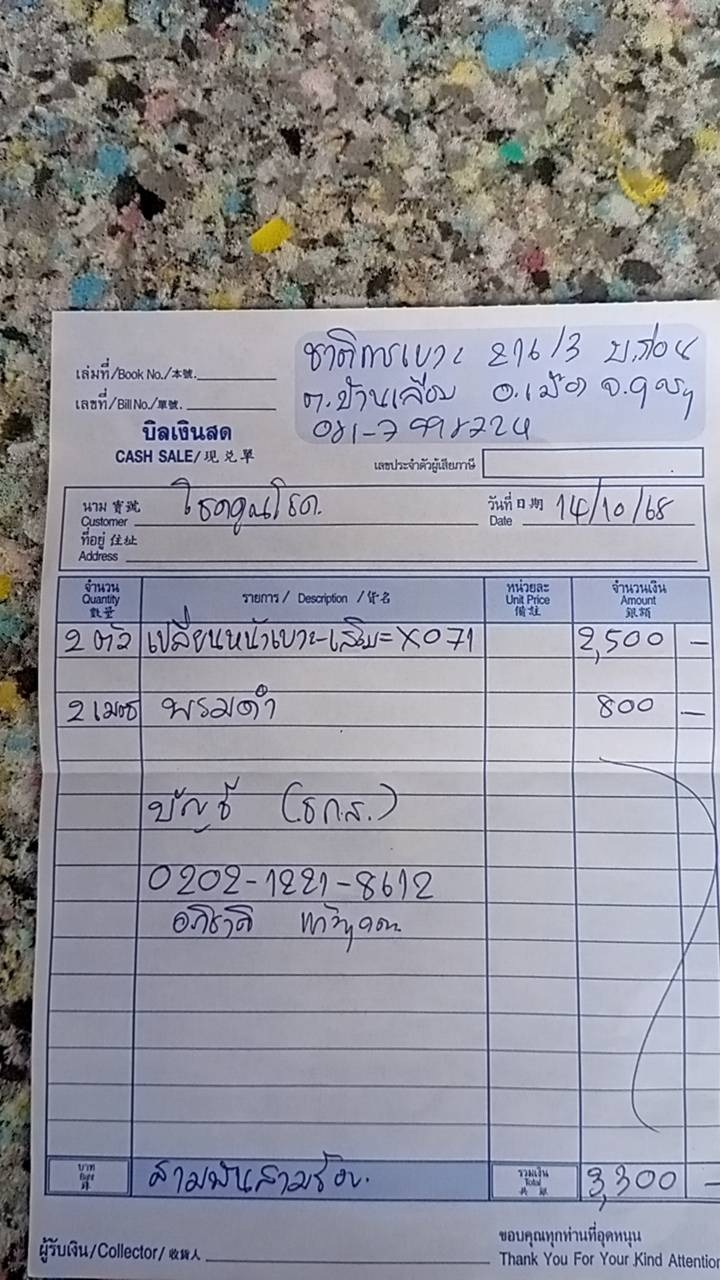 ชาติการเบาะ 276/3
ต.บ้านเลื่อม อ.เมือง จ.อุดรฯ
เล่มที่/Book No./本號.
เลขที่/Bill No./單號.
บิลเงินสด
CASH SALE/现兑單
เลขประจำตัวผู้เสียภาษี
นาม 寳號 Customer โชคคูณโชค. วันที่ 日期 Date 14/10/68
ที่อยู่ 住址 Address
จำนวน Quantity 數量 รายการ / Description / 货名 หน่วยละ Unit Price 備註 จำนวนเงิน Amount 銀額
2 ตัว เปลี่ยนหน้าเบาะ-เสริม=X071 2,500 –
2 เมตร พรมดำ 800 –
บัญชี (ธกส.)
0202-1221-8612
อภิชาติ
บาท Baht สามพันสามร้อย. รวมเงิน Total 共銀 3,300 –
ผู้รับเงิน/Collector/收貨人
ขอบคุณทุกท่านที่อุดหนุน
Thank You For Your Kind Attention